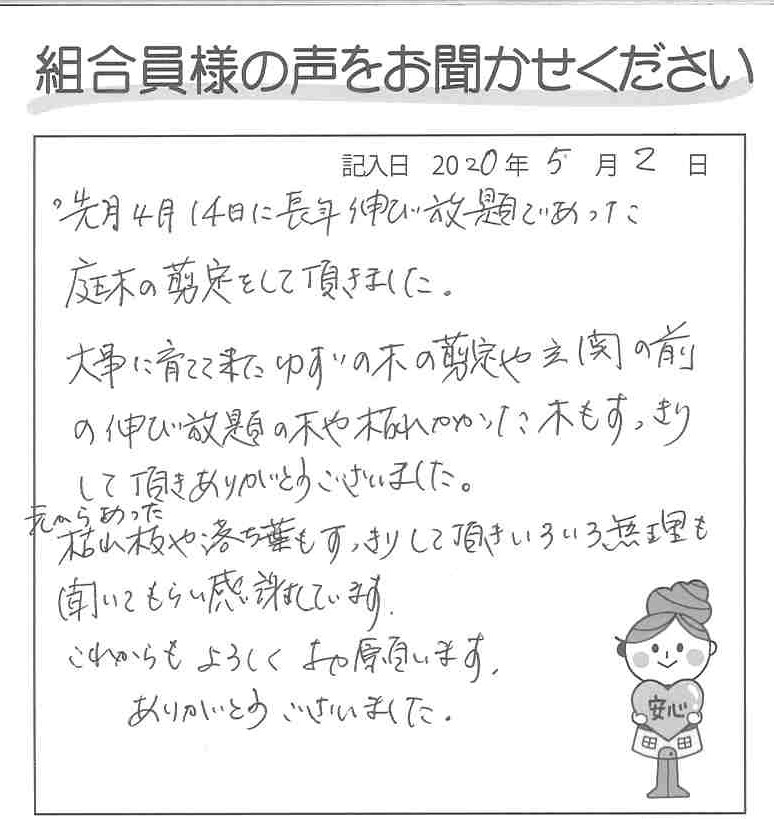 組合員様の声をお聞かせください
記入日 2020年 5月 2日
°先月4月14日に長年伸び放題であった
庭木の剪定をして頂きました。
大事に育てて来たゆずの木の剪定や玄関の前
の伸び放題の木や枯れかかった木もすっきり
して頂きありがとうございました。
元からあった
枯れ枝や落ち葉もすっきりして頂きいろいろ無理も
聞いてもらい感謝しています.
これからもよろしくお願います.
ありがとうございました.
安心